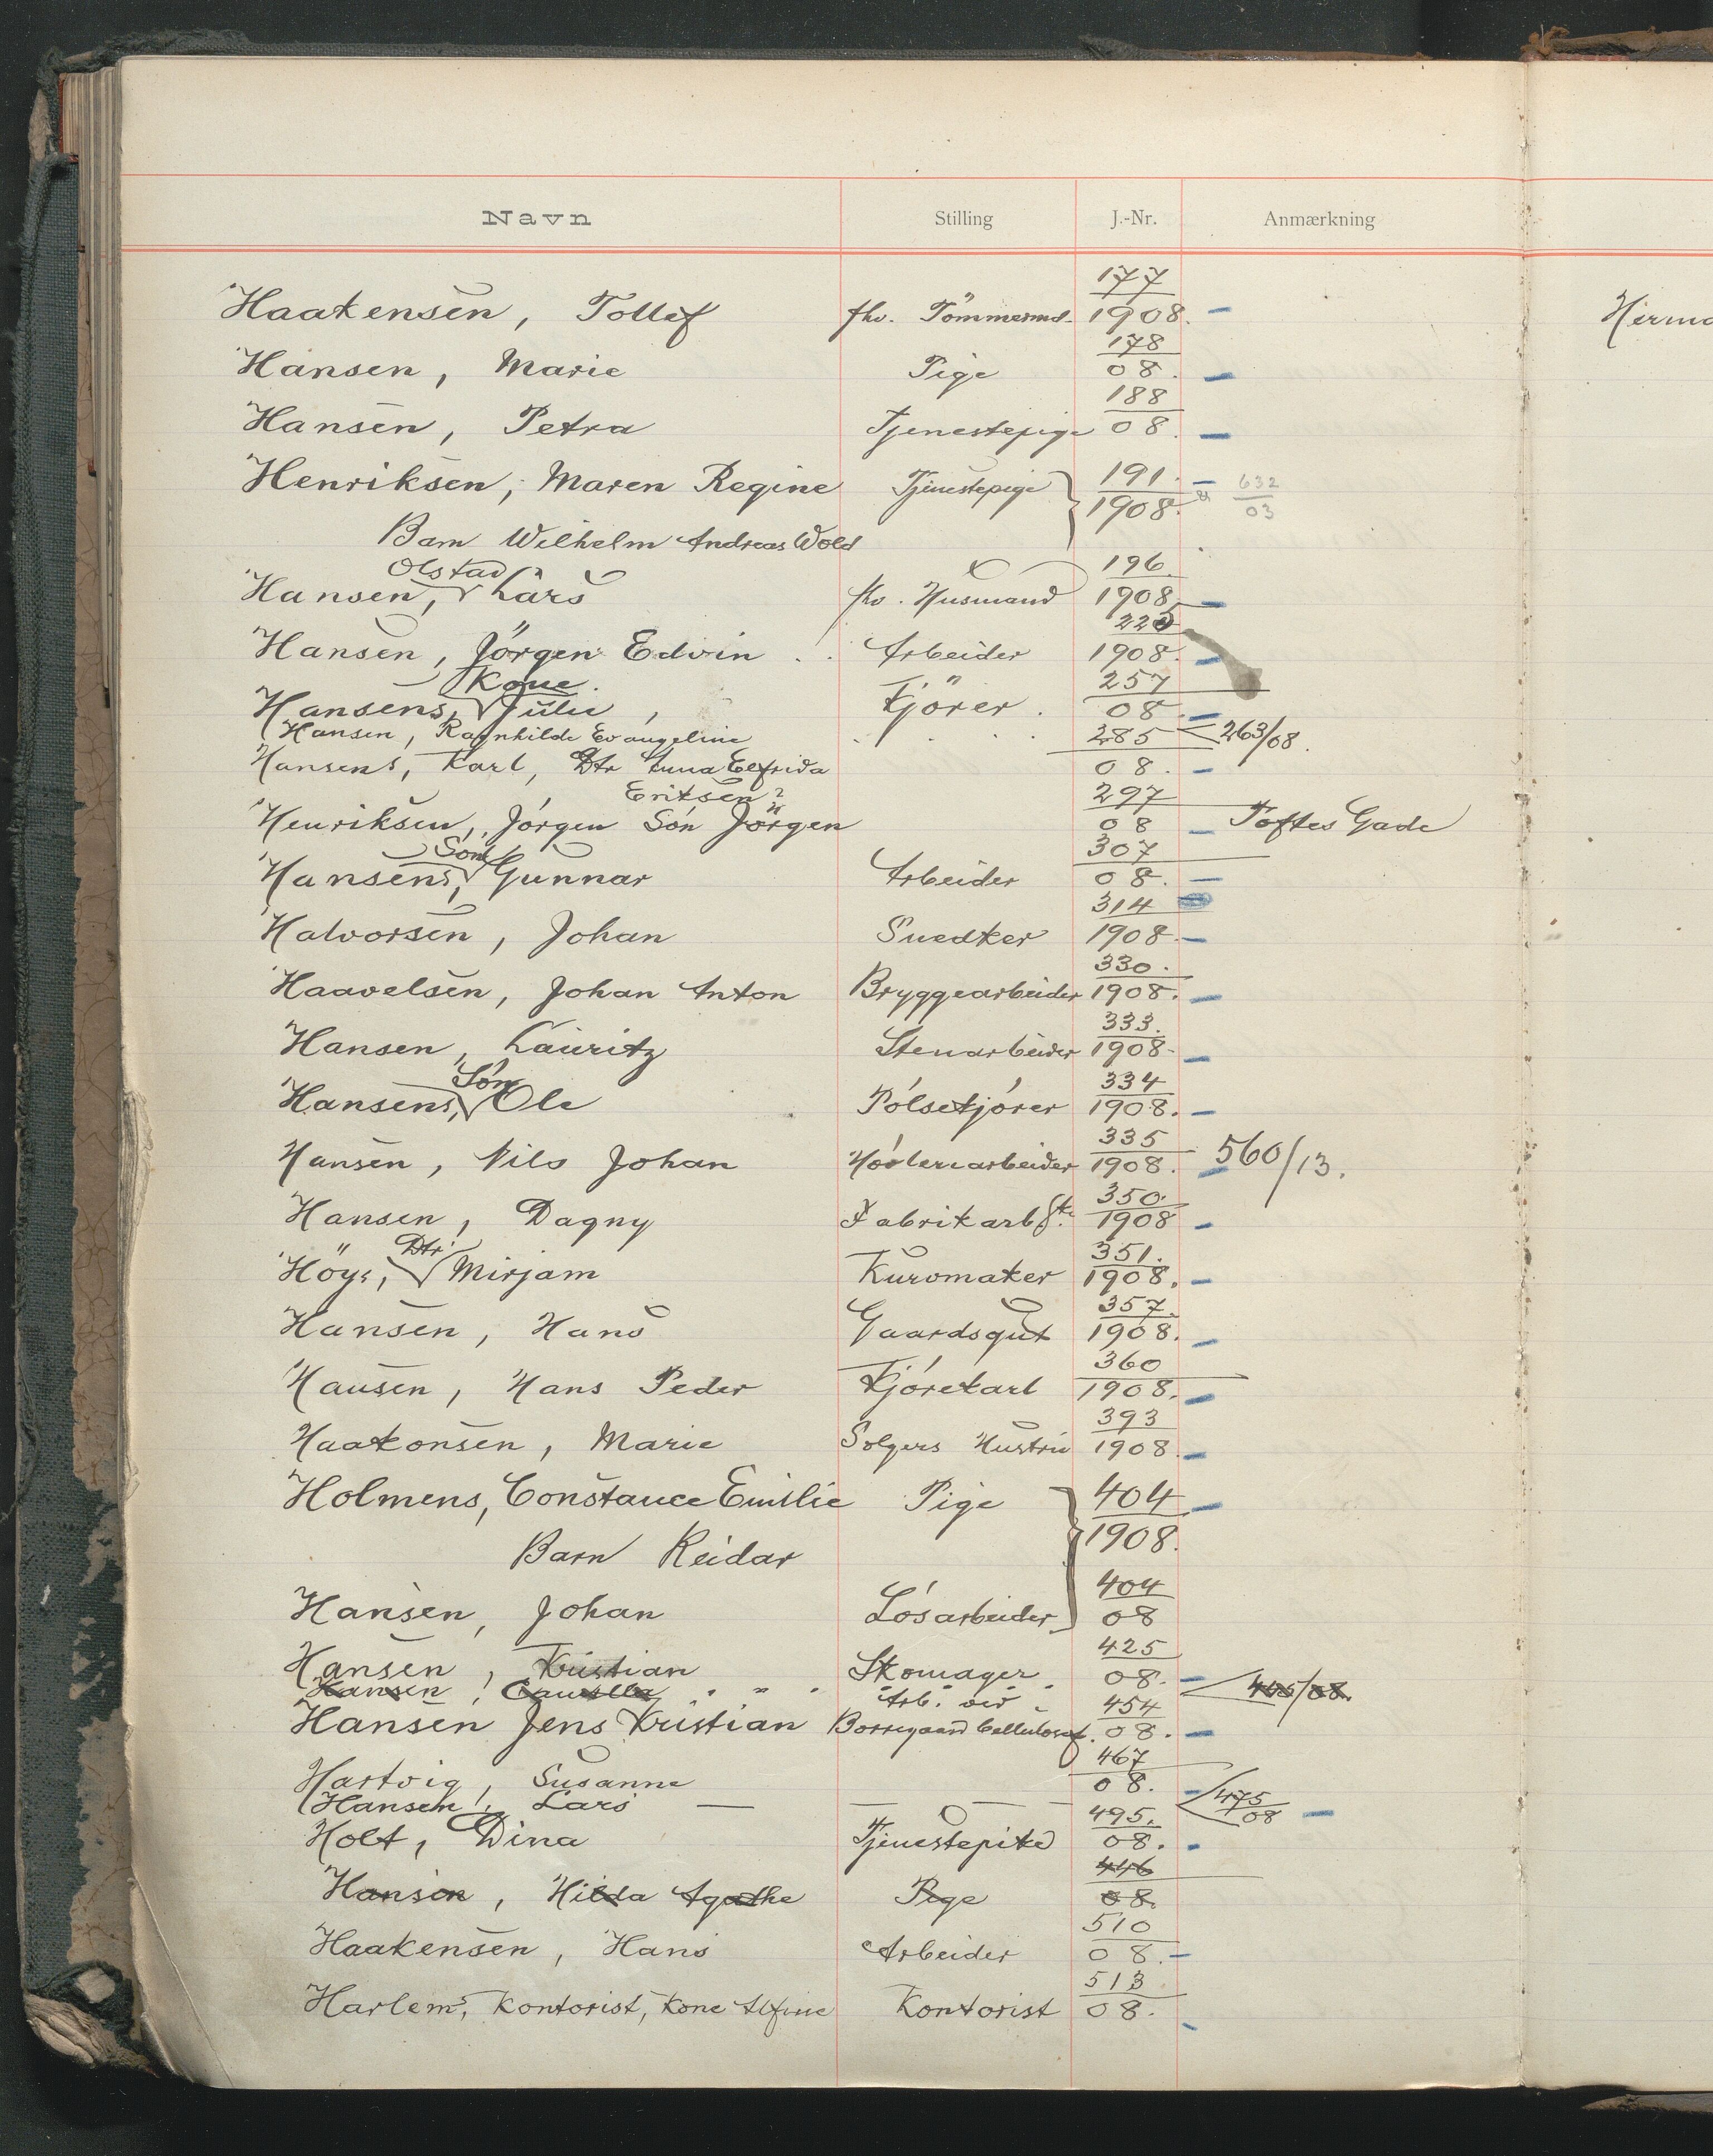 Navn Stilling J.-Nr. Anmærkning
Haakensen, Tollef fhv. Tömmermd. 177/1908.
Hansen, Marie Pige 178/08.
Hansen, Petra Tjenestepige 188/08.
Henriksen, Maren Regine Tjenestepige 191./1908. 632/03
Barn Wilhelm Andreas Wold
Olstad
Hansen, Lars fhv. Husmand 196./1908
Hansen, Jörgen Edvin Arbeider 220/1908.
Kone.
Hansens, Julie, Kjörer. 257/08
Hansen, Ragnhilde Evangeline 263/08.
Hansens, Karl, Dtr Anna Elfrida 285/08.
Eriksen?
Henriksen, Jörgen Sön Jörgen 297/08 Toftes Gade
Sön
Hansens, Gunnar Arbeider 307/08.
Halvorsen, Johan Snedker 314/1908.
Haavelsen, Johan Anton Bryggearbeider 330./1908.
Hansen, Lauritz Stenarbeider 333./1908.
Sön
Hansens, Ole Pölsekjörer 334/1908.
Hansen, Nils Johan Hövleriarbeider 335/1908. 560/13.
Hansen, Dagny Fabrikarb.ske. 350./1908
Dtr.
Höys, Mirjam Kurvmaker 351./1908.
Hansen, Hans Gaardsgut 357./1908.
Hansen, Hans Peder Kjörekarl 360/1908.
Haakonsen, Marie Solgers Hustru 393/1908.
Holmens, Constance Emilie Pige 404/1908.
Barn Reidar
Hansen, Johan Lösarbeider 404/08
Hansen, Kristian Skomager 425/08.
Hansen, Camilla " " " 405/08.
Arb. ved
Hansen Jens Kristian Borregaard Cellulosef. 454/08.
Hartvig, Susanne 467/08.
Hansen, Lars — — — 475/08
Holt, Dina Tjenestepike 495./08.
Hansen, Hilda Agathe Pige 446/08.
Haakensen, Hans Arbeider 510/08.
Harlems, Kontorist, Kone Alfine Kontorist 513/08.